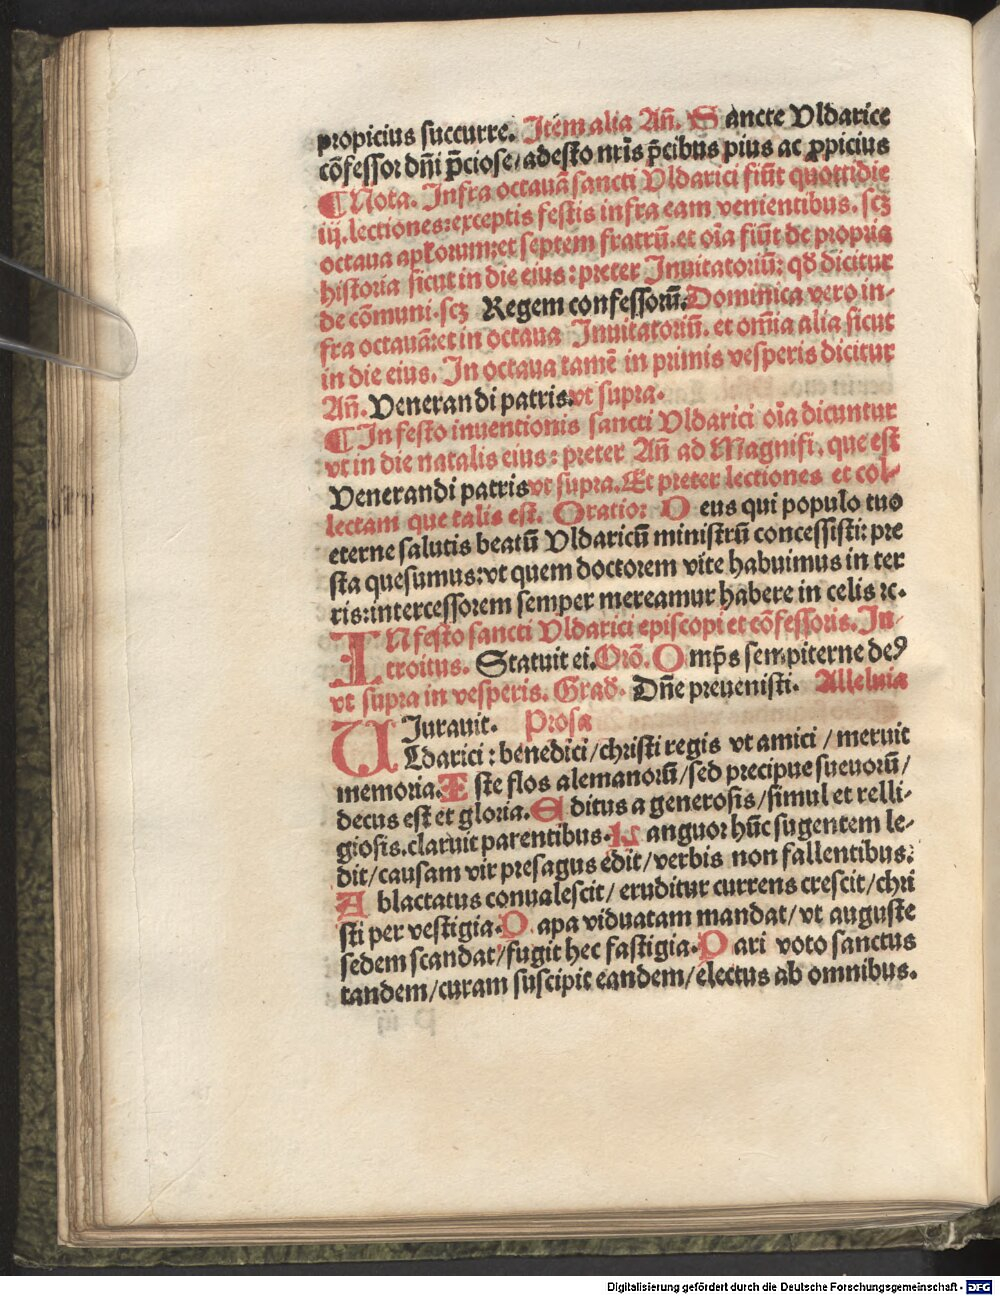 propicius succurre. Item alia Añ. Sancte Vldarice
cõfessor dñi p̃ciose/adesto nr̃is p̃cibus pius ac ꝓpicius
¶ Nota. Infra octauã sancti Vldarici fiũt quottidie
iij. lectiones:exceptis festis infra eam venientibus. scꝫ
octaua apłorum:et septem fratrũ. et oĩa fiũt de propria
historia sicut in die eius : preter Inuitatoriũ: qð dicitur
de cõmuni. scꝫ Regem confessorũ. Dominica vero in-
fra octauã:et in octaua Inuitatoriũ. et om̃ia alia sicut
in die eius. In octaua tamẽ in primis vesperis dicitur
Añ. Venerandi patris. vt supra.
¶ In festo inuentionis sancti Vldarici oĩa dicuntur
vt in die natalis eius : preter Añ ad Magnifi. que est
Venerandi patris vt supra. Et preter lectiones et col-
lectam que talis est. Oratio: Deus qui populo tuo
eterne salutis beatũ Vldaricũ ministrũ concessisti: pre
sta quesumus:vt quem doctorem vite habuimus in ter
ris:intercessorem semper mereamur habere in celis ꝛc.
IN festo sancti Vldarici episcopi et cõfessoris. In-
troitus. Statuit ei. Orõ. Omp̃s sempiterne deꝰ
vt supra in vesperis. Grad. Dñe preuenisti. Alleluia
Jurauit. Prosa
Vldarici : benedici/christi regis vt amici / meruit
memoria. Iste flos alemanorũ/sed precipue sueuorũ/
decus est et gloria. Editus a generosis/simul et relli-
giosis.claruit parentibus. Languor hũc sugentem le-
dit/causam vir presagus edit/verbis non fallentibus:
Ablactatus conualescit/ eruditur currens crescit/chri
sti per vestigia. Papa viduatam mandat/ vt auguste
sedem scandat/fugit hec fastigia. Pari voto sanctus
tandem/curam suscipit eandem/electus ab omnibus.
Digitalisierung gefördert durch die Deutsche Forschungsgemeinschaft - DFG